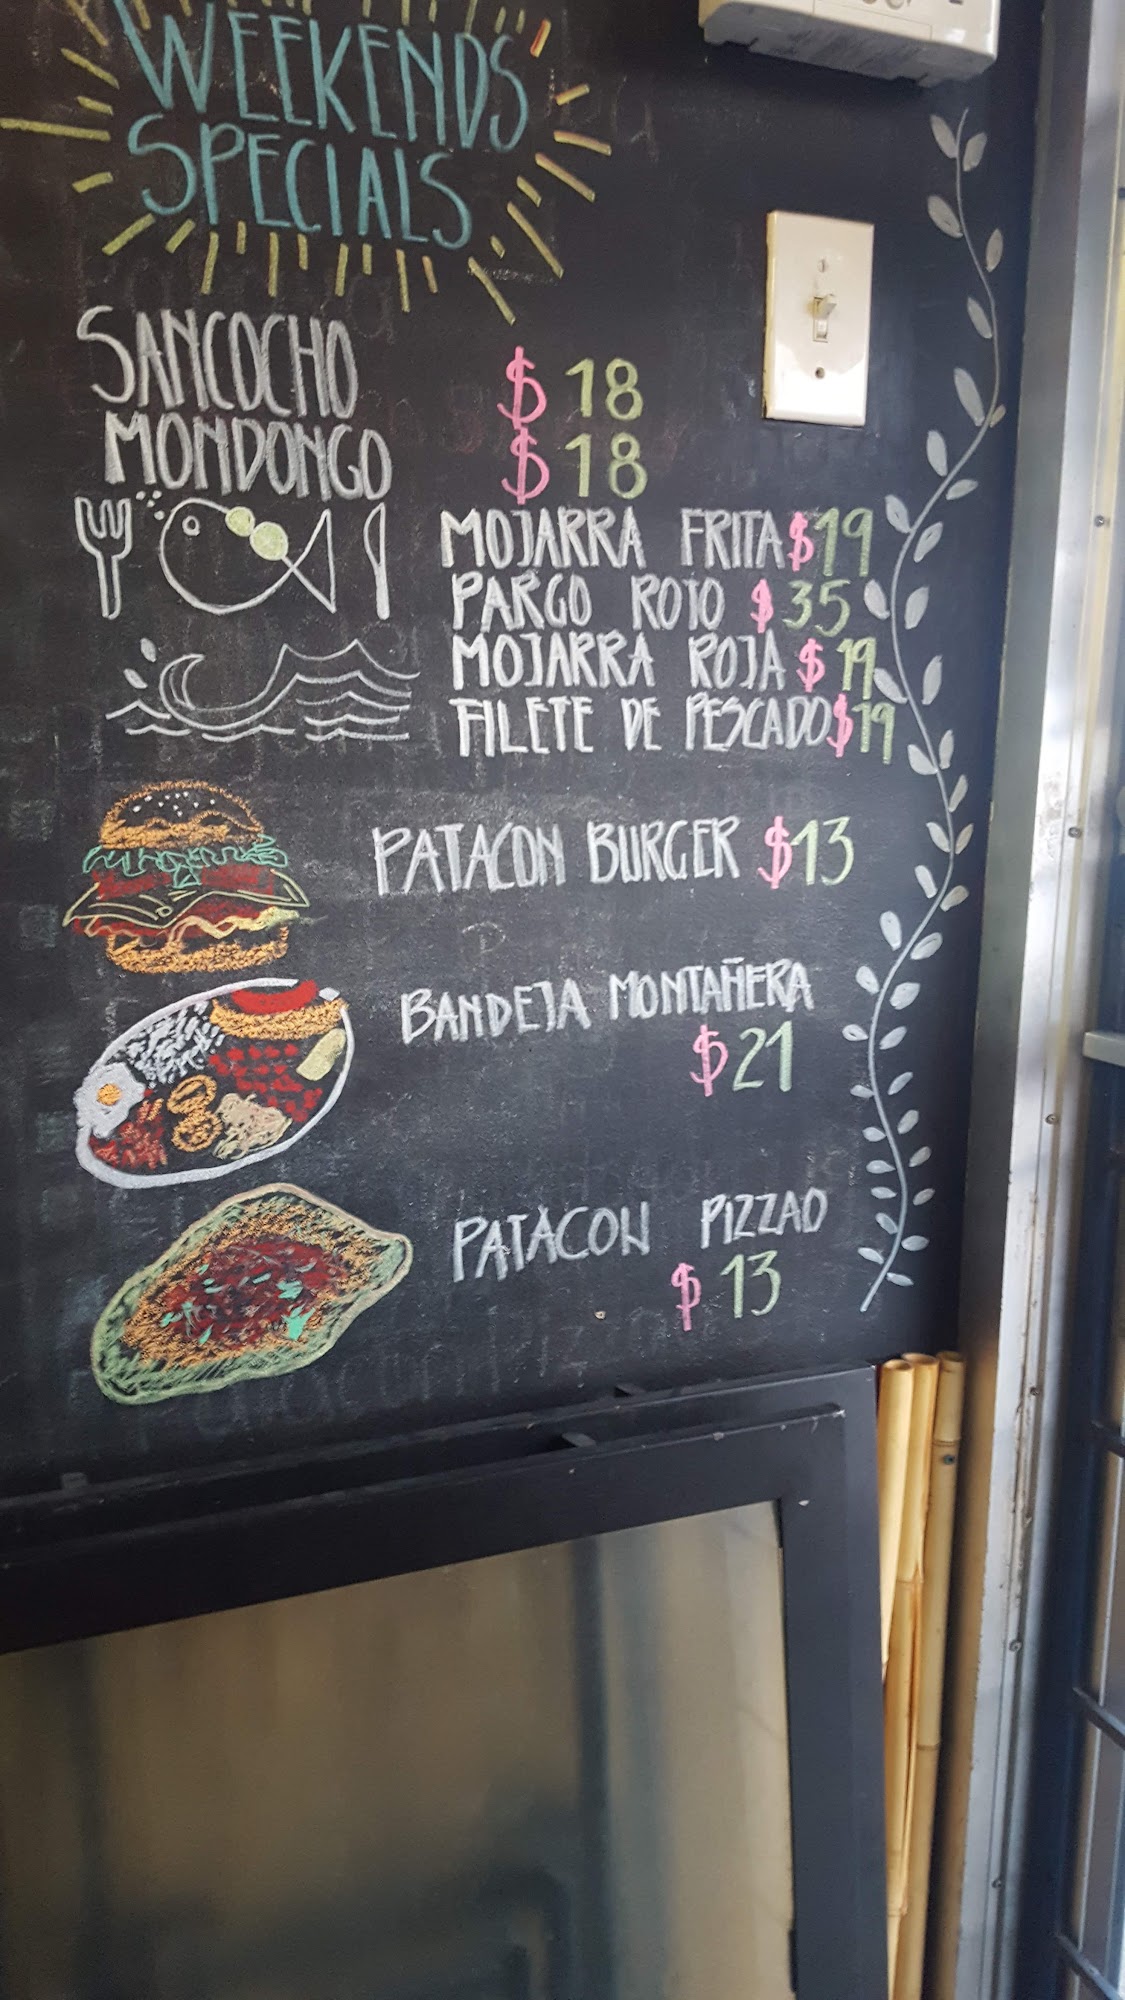 WEEKENDS
SPECIALS
SANCOCHO $18
MONDONGO $18
MOJARRA FRITA $19
PARGO ROJO $35
MOJARRA ROJA $19
FILETE DE PESCADO $19
PATACON BURGER $13
BANDEJA MONTAÑERA
$21
PATACON PIZZAO
$13